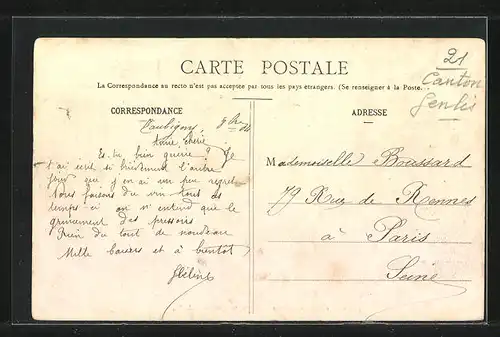 CARTE POSTALE
La Correspondance au recto n'est pas acceptée par tous les pays étrangers. (Se renseigner à la Poste.
21
Canton
Genlis
CORRESPONDANCE
ADRESSE
9bre 04
Anne chérie
Es-tu bien guérie ? Je
t'ai écrit si brièvement l'autre
jour que j'en ai un peu regret
Nous faisons du vin tous ces
temps-ci on n'entend que le
grincement des pressoirs
Rien du tout de nouveau
Mille baisers et à bientôt
Hélène
Mademoiselle Boussard
79 Rue de Rennes
à Paris
Seine